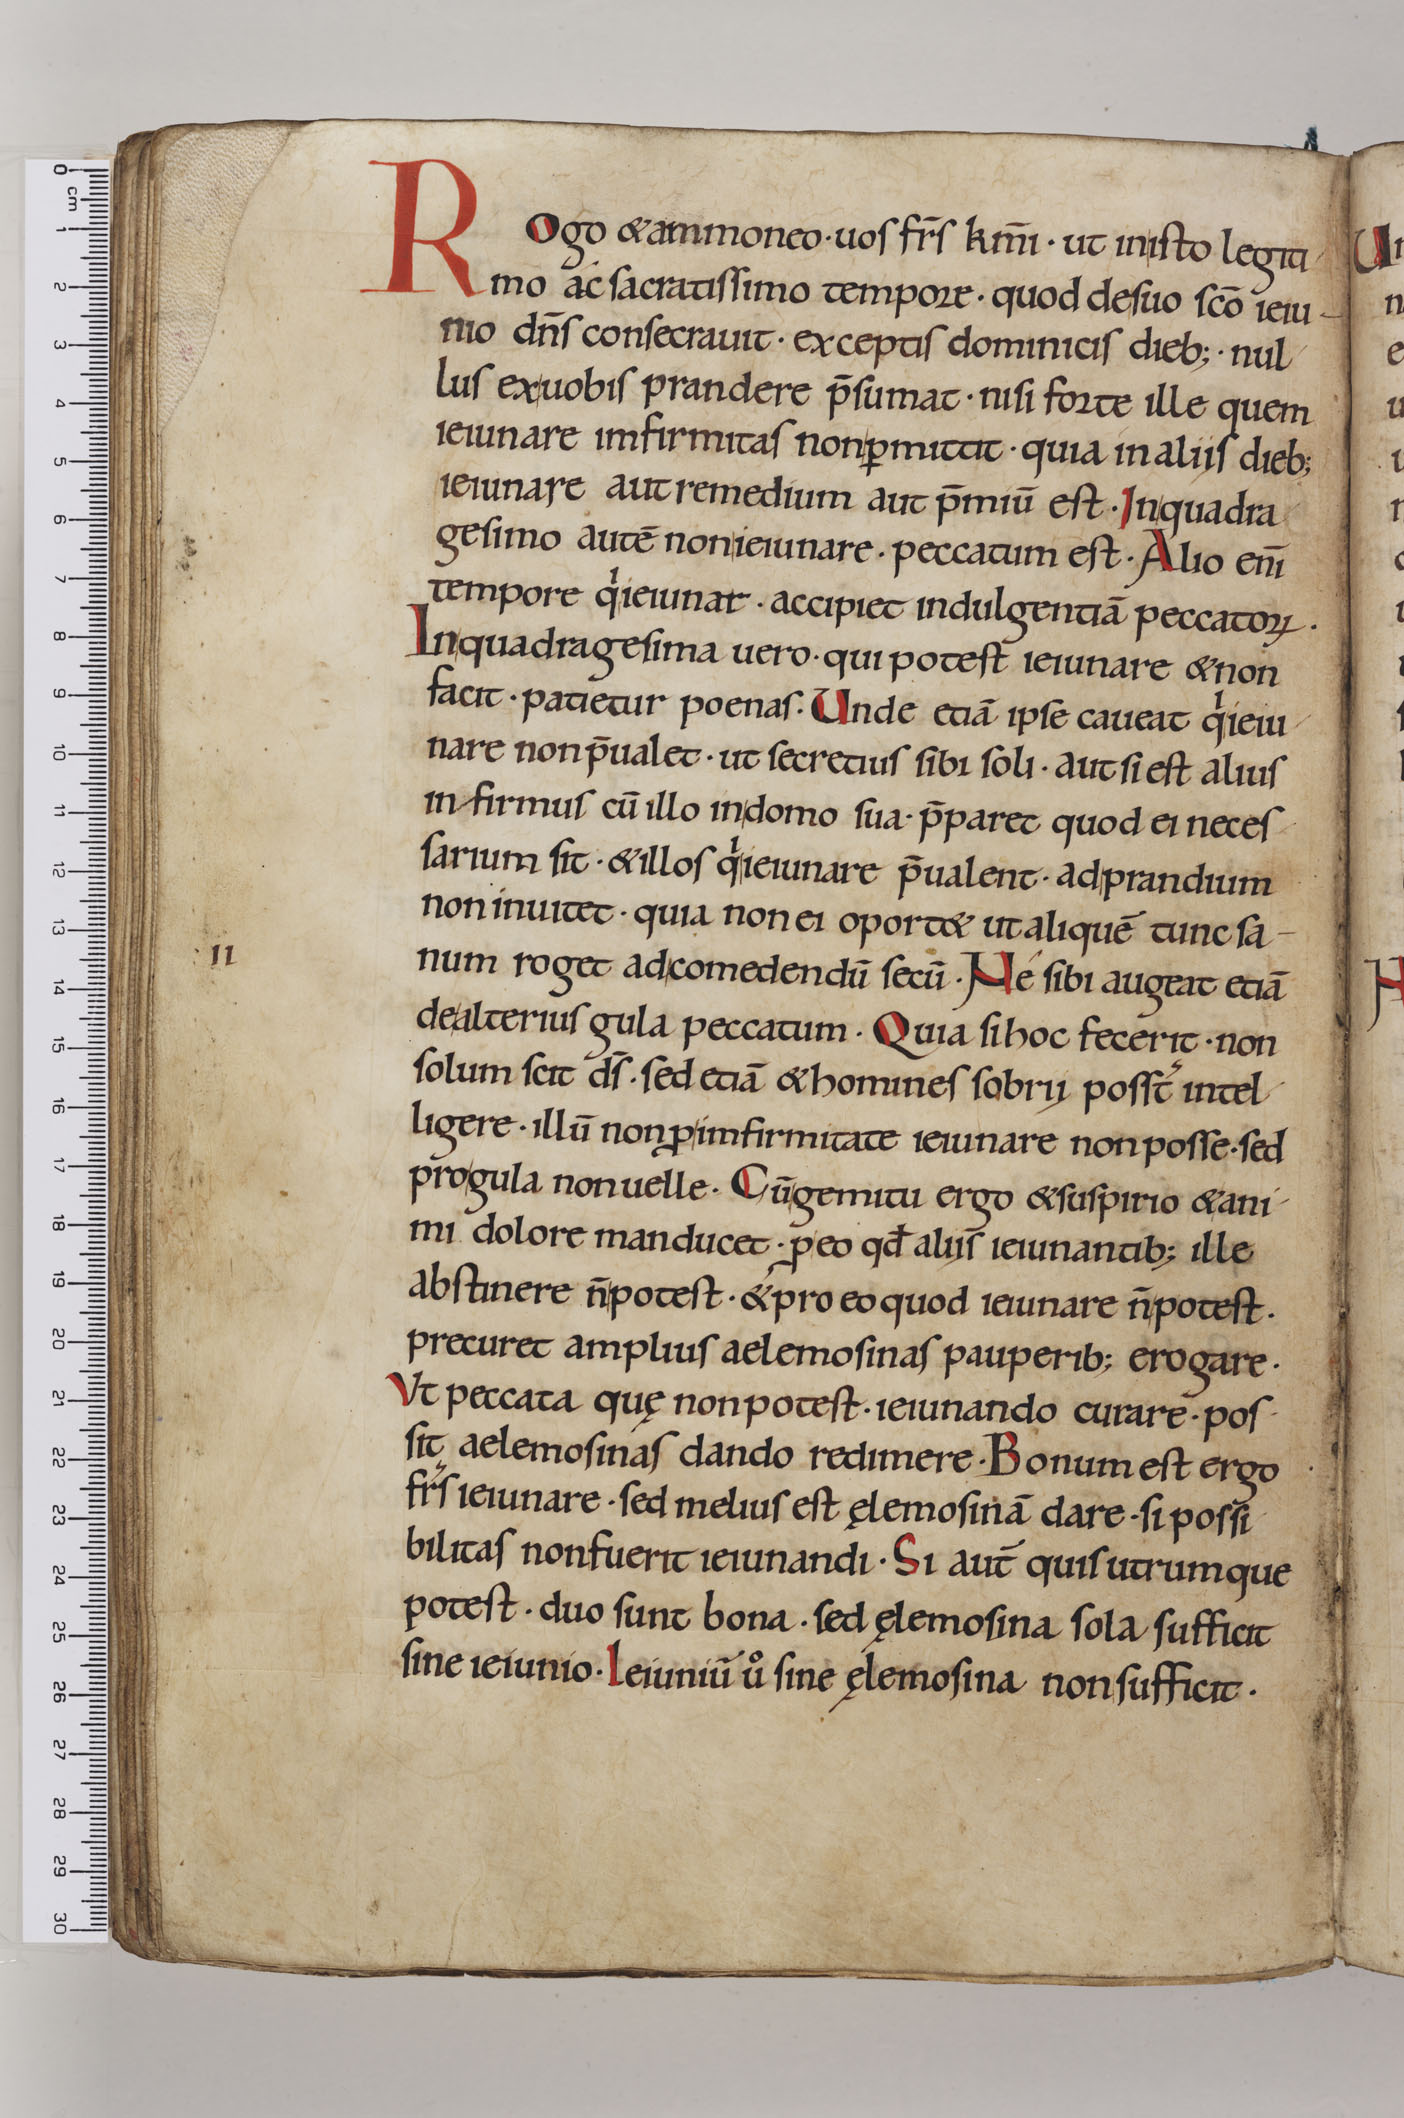 Rogo & ammoneo · uos fr̄s km̄i · ut in isto legiti
mo ac̄ sacratissimo tempore · quod de suo sc̄o ieiu-
nio dn̄s consecrauit · exceptis dominicis dieb; · nul
lus ex uobis prandere p̄sumat · nisi forte ille quem
ieiunare imfirmitas non ꝑmittit · quia in aliis dieb;
ieiunare aut remedium aut p̄miū est · In quadra
gesimo autē non ieiunare · peccatum est · Alio eni̅
tempore qͥ ieiunat · accipiet indulgentiā peccatoꝝ ·
In quadragesima uero · qui potest ieiunare & non
facit · patietur poenas · Unde etiā ipse caueat qͥ ieiu
nare non p̄ualet · ut secretius sibi soli · aut si est alius
infirmus cū illo in domo sua · p̄paret quod ei neces
sarium sit · & illos qͥ ieiunare p̄ualent · ad prandium
non inuitet · quia non ei oport& ut aliquē tunc sa-
num roget ad comedendū secū · Né sibi augeat etiā
de alterius gula peccatum · Quia si hoc fecerit · non
solum scit ds̄ · sed etiā & homines sobrij posst̄ intel
ligere · illū non ꝓ imfirmitate ieiunare non posse · sed
pro gula non uelle · Cū gemitu ergo & suspirio & ani
mi dolore manducet · ꝓ eo qđ alijs ieiunantib; ille
abstinere n̄ potest · & pro eo quod ieiunare n̄ potest ·
precuret amplius aelemosinas pauperib; erogare ·
Vt peccata quę non potest · ieiunando curare · pos
sit aelemosinas dando redimere · Bonum est ergo
fr̄s ieiunare · sed melius est ęlemosinā dare · si possi
bilitas non fuerit ieiunandi · Si aut̄ quis utrumque
potest · duo sunt bona · sed ęlemosina sola sufficit
sine ieiunio · Ieiuniū uͦ sine ęlemosina non sufficit ·
II
0 cm 1 2 3 4 5 6 7 8 9 10 11 12 13 14 15 16 17 18 19 20 21 22 23 24 25 26 27 28 29 30